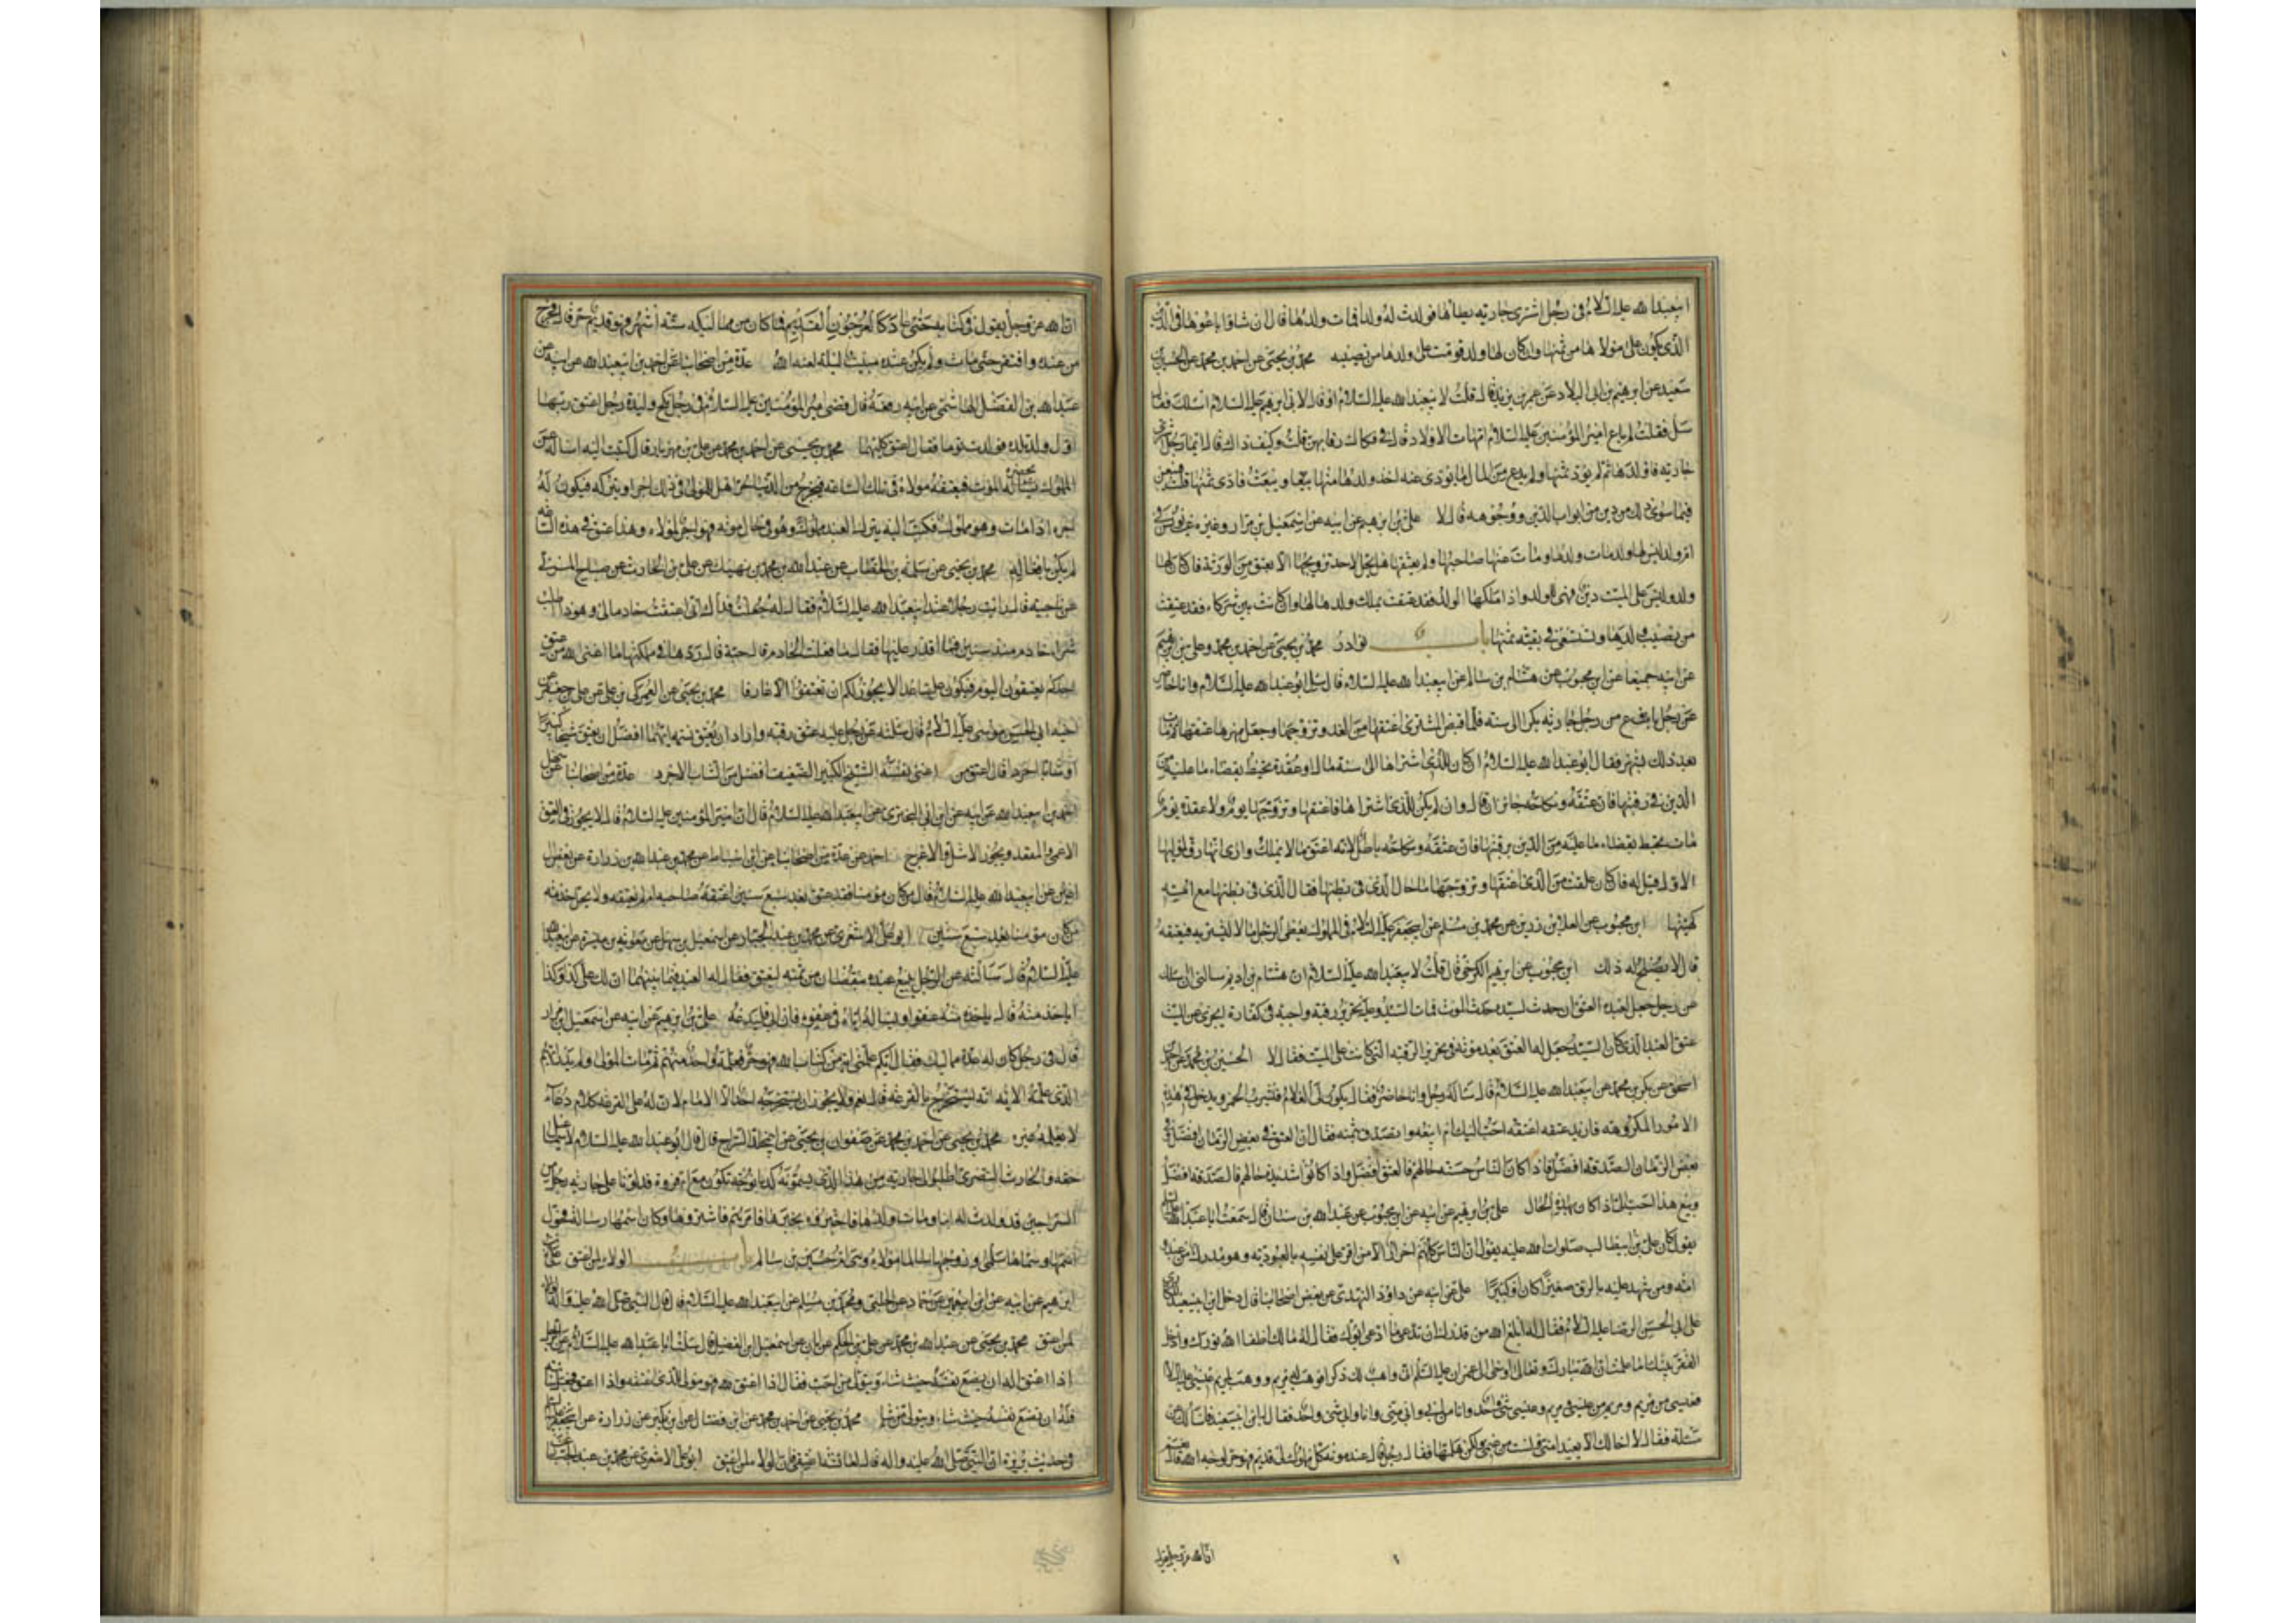 ابيعبدالله عليه السلام في رجل اشترى جارية يطأها فولدت له ولدا فمات ولدها قال ان شاؤا باعوها في الدين
الذي يكون على مولاها من ثمنها وان كان لها ولد قومت على ولدها من نصيبه محمد بن يحيى عن احمد بن محمد عن الحسين بن
سعيد عن ابرهيم بن ابي البلاد عن عمر بن يزيد قال قلت لابيعبدالله عليه السلام او قال لابي ابرهيم عليه السلام اسئلك فقال
سل فقلت لم باع امير المؤمنين عليه السلام امهات الاولاد قال في فكاك رقابهن قلت وكيف ذاك قال ايما رجل اشترى
جارية فاولدها ثم لم يؤد ثمنها ولم يدع من المال ما يؤدى عنه اخذ ولدها منها بيعها وبيعت فادى ثمنها قلت فيبعن
فيما سوى ذلك من دين من ابواب الدين ووجوهه قال لا علي بن ابرهيم عن ابيه عن اسمعيل بن مرار وغيره عن يونس في
ام ولد ليس لها ولد مات ولدها ومات عنها صاحبها ولم يعتقها هل يحل لاحد تزويجها الا بعتق من الورثة فان كان لها
ولد وليس على الميت دين فهي للولد واذا ملكها الولد فقد عتقت بملك ولدها لها وان كانت بين شركاء فقد عتقت
من نصيب ولدها وتستسعى في بقية ثمنها باب نوادر محمد بن يحيى عن احمد بن محمد وعلي بن ابرهيم
عن ابيه جميعا عن ابن محبوب عن هشام بن سالم عن ابيعبدالله عليه السلام قال سئل ابو عبدالله عليه السلام وانا حاضر
عن رجل باع من رجل جارية بكرا الى سنة فلما قبضها المشتري اعتقها من الغد وتزوجها وجعل مهرها عتقها ثم مات
بعد ذلك بشهر فقال ابو عبدالله عليه السلام ان كان للذي اشتراها الى سنة مال او عقدة تحيط بقضاء ما عليه من
الدين في رقبتها فان عتقه ونكاحه جائزان قال وان لم يكن للذي اشتراها فاعتقها وتزوجها يوم ولا عقدة يوم
مات تحيط بقضاء ما عليه من الدين برقبتها فان عتقه ونكاحه باطل لانه اعتق ما لا يملك وارى انها رق لمولاها
الاول قيل له فان كان علقت من الذي اعتقها وتزوجها ما حال الذي في بطنها فقال الذي في بطنها مع امه
كهيئتها ابن محبوب عن العلا بن رزين عن محمد بن مسلم عن ابيجعفر عليه السلام في المملوك يعطي الرجل مالا ليشتريه فيعتقه
قال لا يصلح له ذلك ابن محبوب عن ابرهيم الكرخي قال قلت لابيعبدالله عليه السلام ان هشام بن اديم سالني ان اسئلك
عن رجل جعل لعبده العتق ان حدث لسيده حدث الموت فمات السيد وعليه تحرير رقبة واجبة في كفارة ايجزي عن الميت
عتق العبد الذي كان السيد جعل له العتق بعد موته في تحرير الرقبة التي كانت على الميت فقال لا الحسين بن محمد عن احمد بن
اسحق عن بكر بن محمد عن ابيعبدالله عليه السلام قال ساله رجل وانا حاضر فقال يكون لي الغلام فيشرب الخمر ويدخل في هذه
الامور المكروهة فاريد عتقه اعتقه احب اليك ام ابيعه واتصدق بثمنه فقال ان العتق في بعض الزمان افضل وفي
بعض الزمان الصدقة افضل فاذا كان الناس حسنة حالهم فالعتق افضل واذا كانوا شديدة حالهم فالصدقة افضل
وبيع هذا احب الي اذا كان بهذه الحال علي بن ابرهيم عن ابيه عن ابن محبوب عن عبدالله بن سنان قال سمعت ابا عبدالله عليه السلام
يقول كان علي بن ابيطالب صلوات الله عليه يقول ان الناس كلهم احرار الا من اقر على نفسه بالعبودية وهو مدرك من عبد او
امة ومن شهد عليه بالرق صغيرا كان او كبيرا علي عن ابيه عن داود النهدي عن بعض اصحابنا قال دخل ابن ابيسعيد المكاري
على ابي الحسن الرضا عليه السلام فقال له ابلغ الله من قدرك ان تدعي ما ادعى ابوك فقال له مالك اطفأ الله نورك وادخل
الفقر بيتك اما علمت ان الله تبارك وتعالى اوحى الى عمران عليه السلام اني واهب لك ذكرا فوهب له مريم ووهب لمريم عيسى عليه السلام
فعيسى من مريم ومريم من عيسى ومريم وعيسى شئ واحد وانا من ابي وابي مني وانا وابي شئ واحد فقال له ابن ابيسعيد فاسألك عن
مسئلة فقال لا اخالك تقبل مني ولست من غنمي ولكن هلمها فقال رجل قال عند موته كل مملوك لي قديم فهو حر لوجه الله فقال نعم
ان الله عز وجل يقول
ان الله عز وجل يقول في كتابه حتى عاد كالعرجون القديم فما كان من مماليكه ستة اشهر فهو قديم حر قال فخرج
من عنده وافتقر حتى مات ولم يكن عنده مبيت ليلة لعنه الله عدة من اصحابنا عن احمد بن ابيعبدالله عن ابيه عن
عبدالله بن الفضل الهاشمي عن ابيه رفعه قال قضى امير المؤمنين عليه السلام في رجل نكح وليدة رجل اعتق ربها
اول ولد تلده فولدت توما فقال اعتق كليهما محمد بن يحيى عن احمد بن محمد عن علي بن مهزيار قال كتبت اليه اساله عن
المملوك يحضره الموت فيعتقه مولاه في تلك الساعة فيخرج من الدنيا حرا هل للمولى في ذلك اجر او يتركه فيكون له
اجره اذا مات وهو مملوك فكتب اليه يترك العبد مملوكا وهو في حال موته فهو اجر لمولاه وهذا عتق في هذه الساعة
لم يكن نافعا له محمد بن يحيى عن سلمة بن الخطاب عن عبدالله بن محمد بن نهيك عن علي بن الحارث عن صباح المزني
عن ناجية قال رايت رجلا عند ابيعبدالله عليه السلام فقال له جعلت فداك اني اعتقت خادما لي وهوذا اطلب
شراء خادم منذ سنين فما اقدر عليها فقال ما فعلت الخادم قال حية قال ردها في مملكتها ما اغنى الله عن عتق
احدكم تعتقون اليوم فيكون علينا غدا لا يجوز لكم ان تعتقوا الا عارفا محمد بن يحيى عن العمركي بن علي عن علي بن جعفر عن
اخيه ابي الحسن موسى عليه السلام قال سئلته عن رجل عليه عتق رقبة واراد ان يعتق نسمة ايهما افضل ان يعتق شيخا كبيرا
او شابا اجردا قال اعتق من اغنى نفسه الشيخ الكبير الضعيف افضل من الشاب الاجرد عدة من اصحابنا عن
احمد بن ابيعبدالله عن ابيه عن ابي البختري عن ابيعبدالله عليه السلام قال ان امير المؤمنين عليه السلام قال لا يجوز في العتق
الاعمى والمقعد ويجوز الاشل والاعرج احمد عن عدة من اصحابنا عن ابن اسباط عن محمد بن عبدالله بن زرارة عن بعض ال
اعين عن ابيعبدالله عليه السلام قال من كان مؤمنا فقد عتق بعد سبع سنين اعتقه صاحبه ام لم يعتقه ولا يحل خدمة
من كان مؤمنا بعد سبع سنين ابو علي الاشعري عن محمد بن عبد الجبار عن اسمعيل بن سهل عن معوية بن ميسرة عن ابيعبدالله
عليه السلام قال سالته عن الرجل يبيع عبده بنقصان من ثمنه ليعتق فقال له العبد فيما بينهما ان لك علي كذا وكذا
اياخذ منه قال ياخذه منه عفوا ويساله اياه في عفو فان ابى فليدعه علي بن ابرهيم عن ابيه عن اسمعيل بن مرار
قال في رجل كان له عدة مماليك فقال ايكم علمني اية من كتاب الله فهو حر فعلمه واحد منهم ثم مات المولى ولم يدر ايهم
الذي علمه الاية انه يستخرج بالقرعة قال نعم ولا يجوز ان يستخرجه احد الا الامام لان له على القرعة كلام ودعاء
لا يعلمه غيره محمد بن يحيى عن احمد بن محمد عن صفوان بن يحيى عن اسحق السراج قال قال ابو عبدالله عليه السلام لاسماعيل
حقه والحارث النصري اطلبوا لي جارية من هذا الذي يسمونه كدبانوجة تكون مع ام فروة فدلونا على جارية رجل من
السراجين قد ولدت له ابنا ومات ولدها فاخبروه بخبرها فامرهم فاشتروها وكان اسمها رسالة فحول
اسمها وسماها سلمى وزوجها سالما مولاه وهي ام حسين بن سالم باب الولاء لمن اعتق علي بن
ابرهيم عن ابيه عن ابن ابيعمير عن حماد عن الحلبي ومحمد بن مسلم عن ابيعبدالله عليه السلام قال قال النبي صلى الله عليه واله الولاء
لمن اعتق محمد بن يحيى عن عبدالله بن محمد عن علي بن الحكم عن ابان عن اسمعيل بن الفضل قال سئلت ابا عبدالله عليه السلام عن الرجل
اذا اعتق اله ان يضع نفسه حيث شاء ويتولى من احب فقال اذا اعتق لله فهو مولى للذي اعتقه واذا اعتق فجعل سائبة
فله ان يضع نفسه حيث شاء ويتولى من شاء محمد بن يحيى عن احمد بن محمد عن ابن فضال عن ابن بكير عن زرارة عن ابيجعفر عليه السلام
في حديث بريرة ان النبي صلى الله عليه واله قال لعائشة اعتقي فان الولاء لمن اعتق ابو علي الاشعري عن محمد بن عبد الجبار